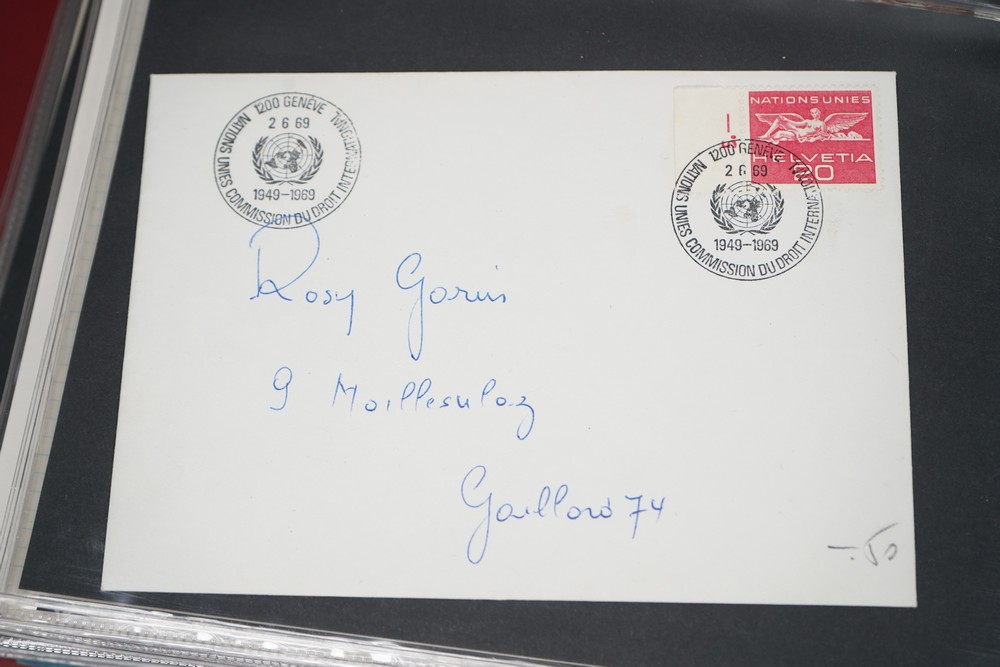 1200 GENÈVE
2 6 69
1949–1969
NATIONS UNIES COMMISSION DU DROIT INTERNATIONAL
NATIONS UNIES
HELVETIA
1200 GENÈVE
2 6 69
1949–1969
NATIONS UNIES COMMISSION DU DROIT INTERNATIONAL
Rosy Gorin
9 Moillesulaz
Gaillard 74
—.50